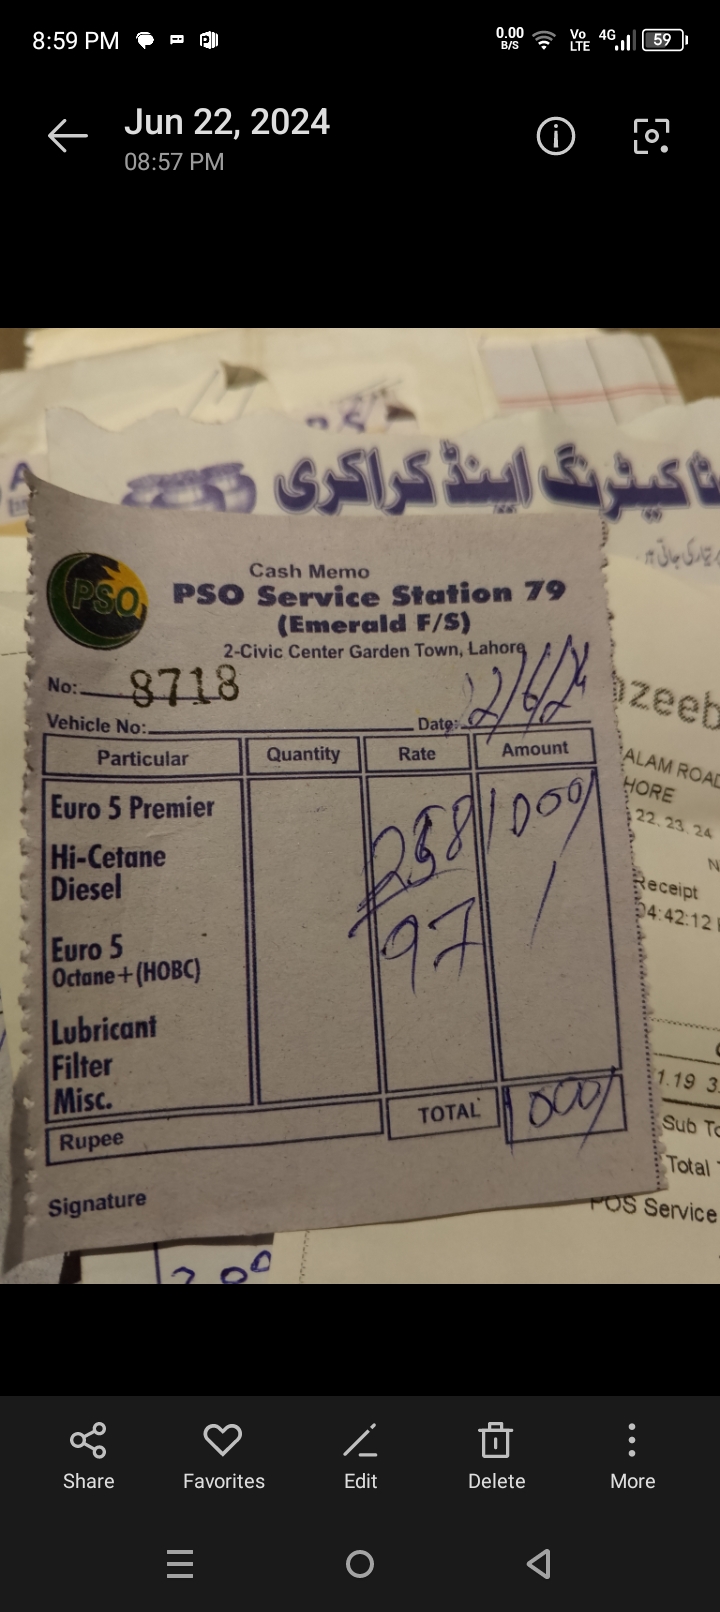 8:59 PM
0.00 B/S
Vo LTE
4G
59
Jun 22, 2024
08:57 PM
کیٹرنگ اینڈ کراکری
PSO
Cash Memo
PSO Service Station 79
(Emerald F/S)
2-Civic Center Garden Town, Lahore
No: 8718
Vehicle No: Date: 12/6/24
Particular Quantity Rate Amount
Euro 5 Premier 258 1000/
Hi-Cetane
Diesel
97 /
Euro 5
Octane+(HOBC)
Lubricant
Filter
Misc.
TOTAL 1000/
Rupee
Signature
zeeb
ALAM ROAD
HORE
22. 23. 24
Receipt
04:42:12
1.19 3.
Sub To
Total
POS Service
Share Favorites Edit Delete More